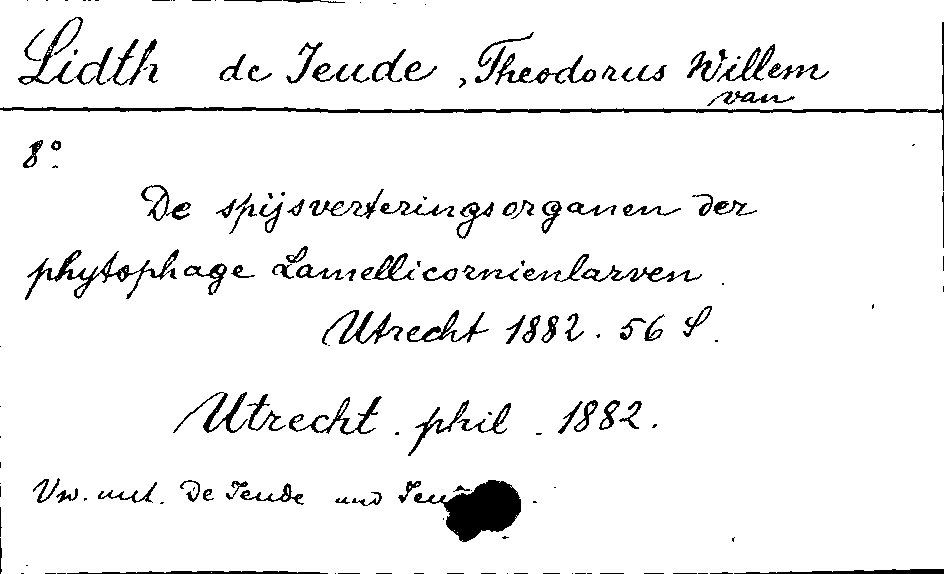 Lidth de Jeude, Theodorus Willem
van
8°.
De spijsverteringsorganen der
phytophage Lamellicornienlarven
Utrecht 1882. 56 S.
Utrecht. phil. 1882.
Vw. unt. De Jeude und